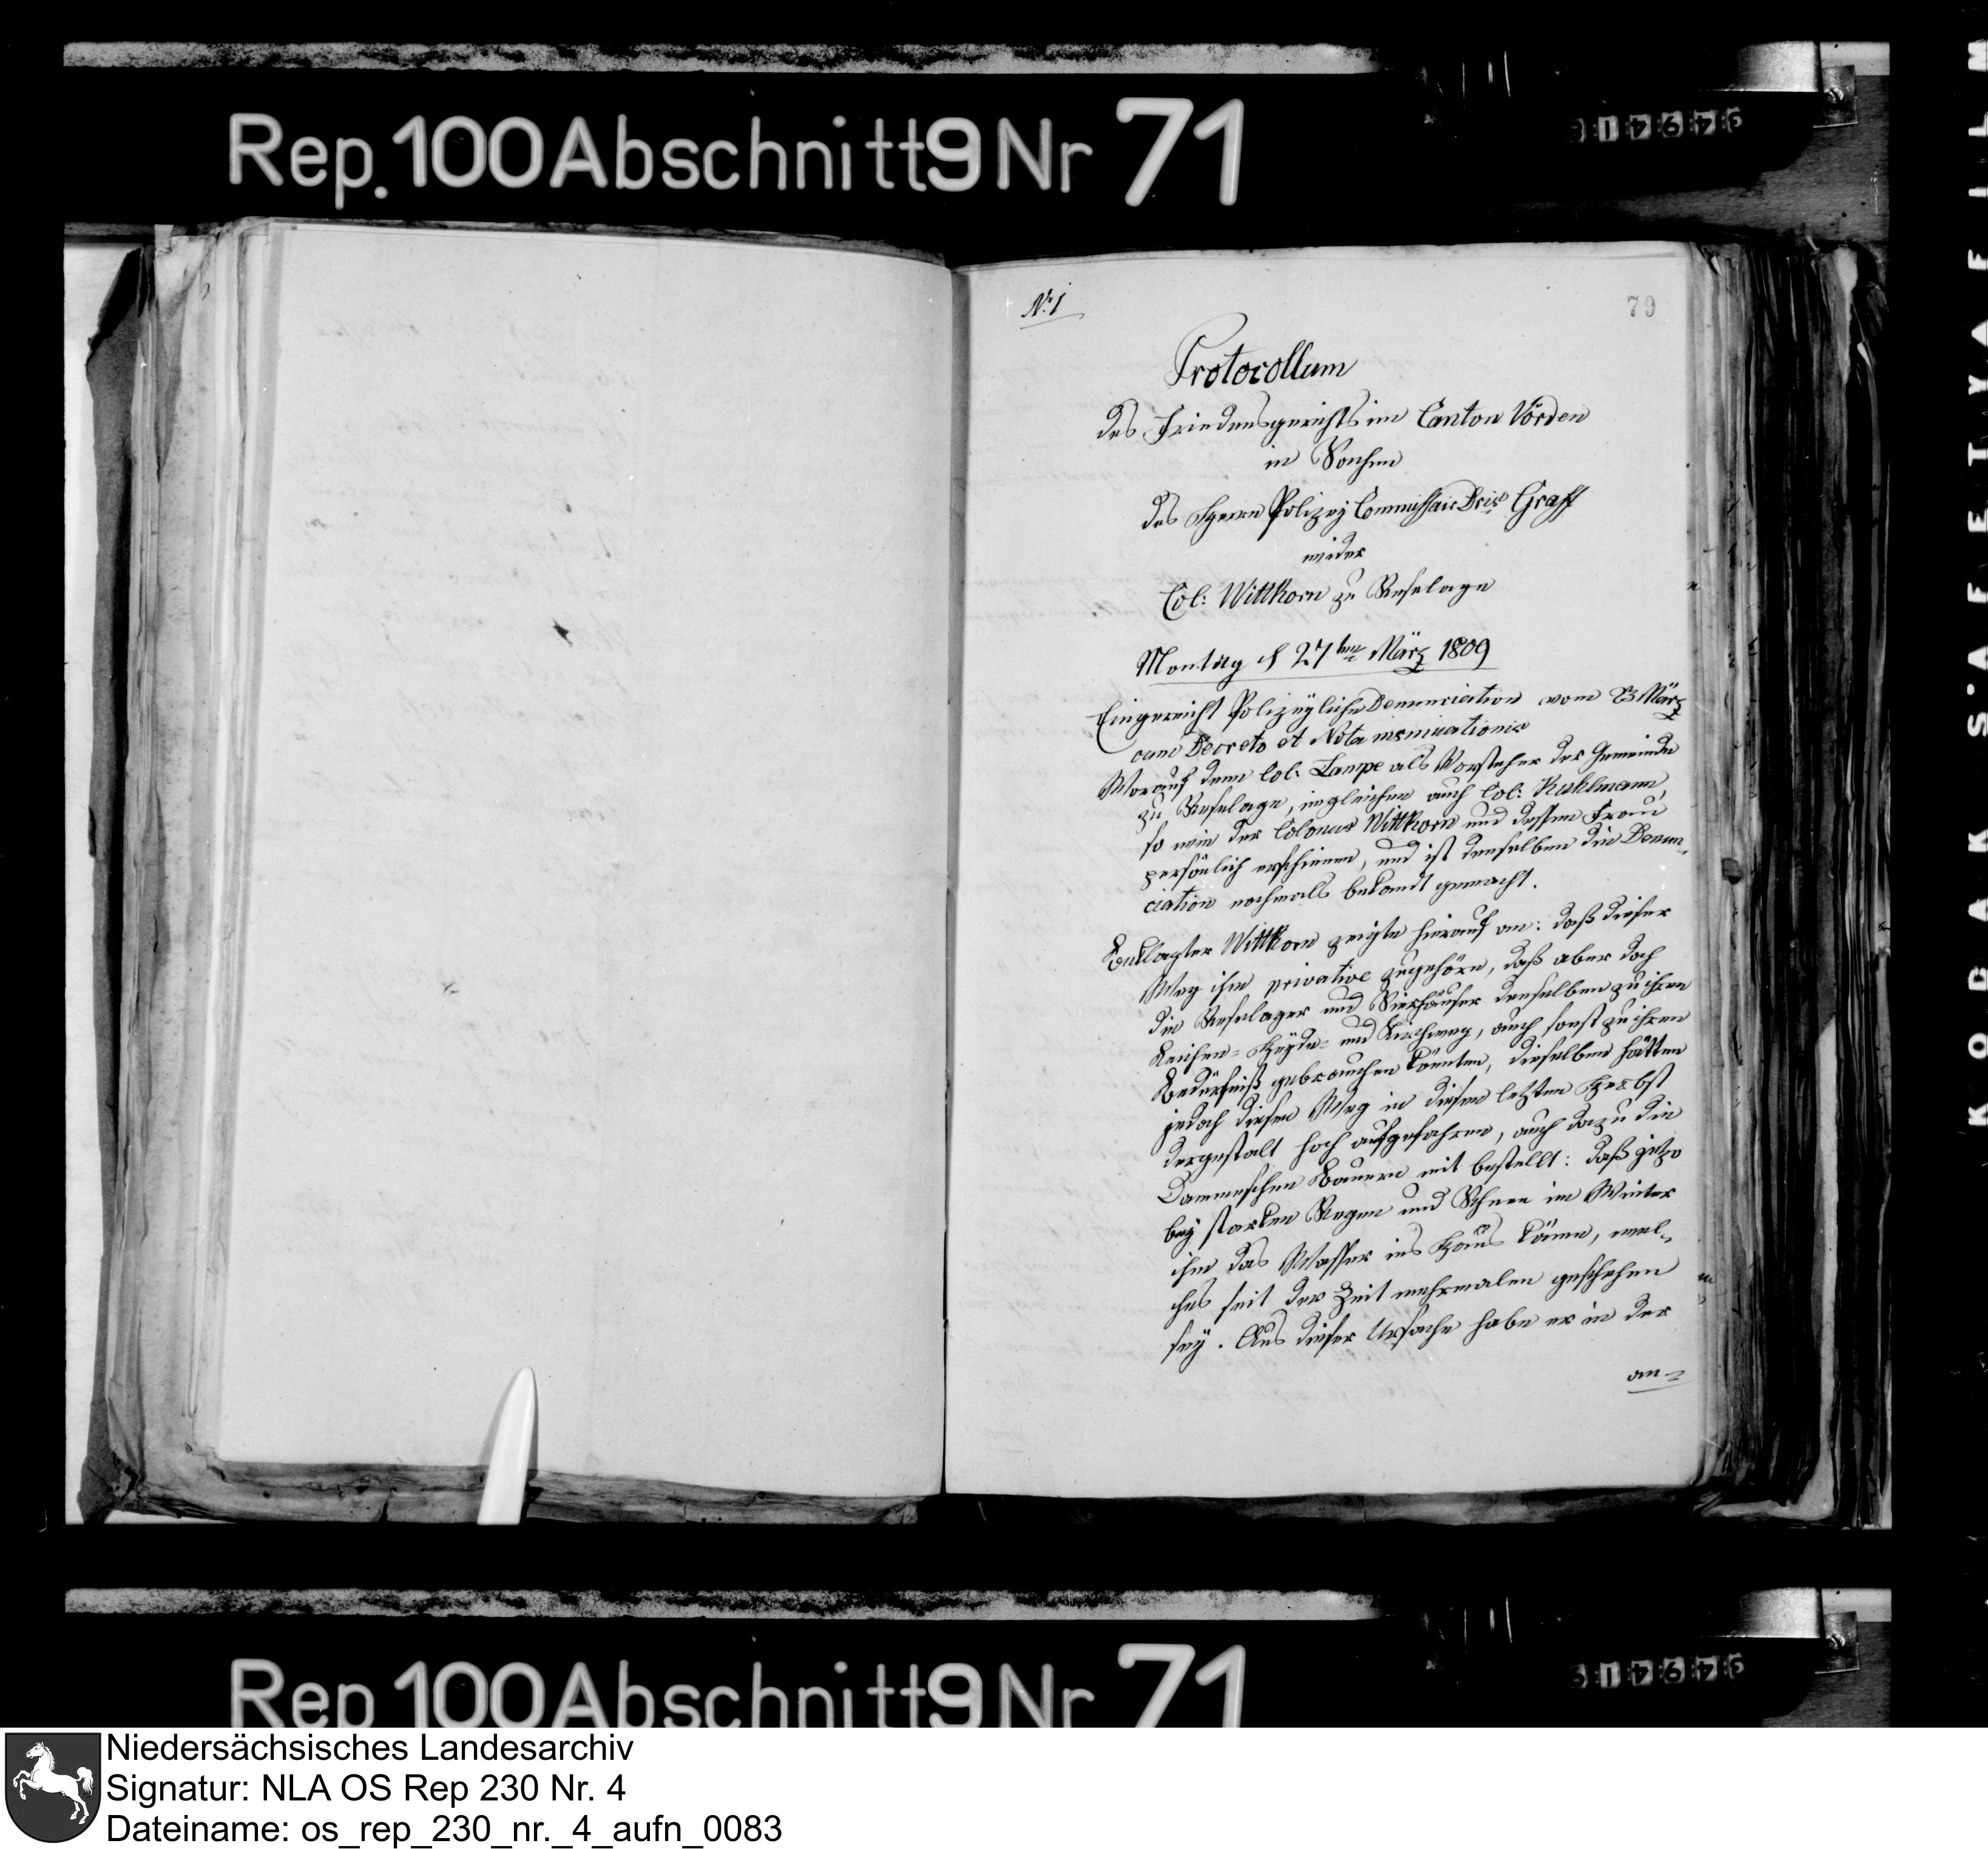 Rep. 100 Abschnitt 9 Nr 71
No 1
79
Protocollum
des Friedensgerichts im Canton Vörden
in Sachen
des Herrn Polizey Commissair Dris Graff
wider
Col: Wittkorn zu Rieselage
Montag d 27ten März 1809
Eingereicht Polizeyliche Denunciation vom 23 März
cum Decreto et Nota insinuationis
Worauf denn Col: Lampe als Vorsteher der Gemeinde
zu Rieselage, imgleichen auch Col: Kuhlmann,
so wie der Colonus Wittkorn und dessen Frau
persönlich erschienen, und ist denselben die Denun-
ciation nochmals bekandt gemacht.
Beklagter Wittkorn zeigte hierauf an: daß dieser
Weg ihm privative zugehöre, daß aber doch
die Rieselager und Vierhäuser denselben zu ihren
Leichen- Heyde- und Kirchweg, auch sonst zu ihren
Bedürfniß gebrauchen könnten, dieselben hätten
jedoch diesen Weg in diesem letzten Herbst
dergestalt hoch aufgefahren, auch dazu die
Dammeschen Bauern mit bestellt: daß jetzo
bey starken Regen und Schnee im Winter
ihm das Wasser ins Haus käme, wel-
ches seit der Zeit mehrmalen geschehen
sey. Aus dieser Ursache habe er in der
an-
KODAK SAFETY FILM
Rep 100 Abschnitt 9 Nr 71
Niedersächsisches Landesarchiv
Signatur: NLA OS Rep 230 Nr. 4
Dateiname: os_rep_230_nr._4_aufn_0083